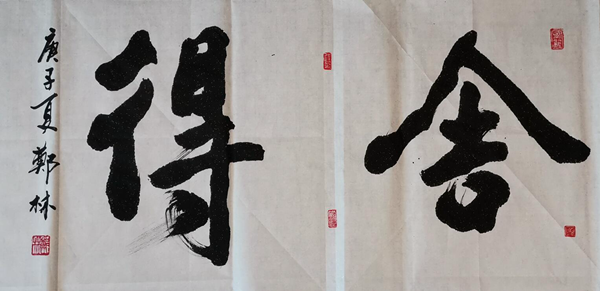 舍得
庚子夏鄭林